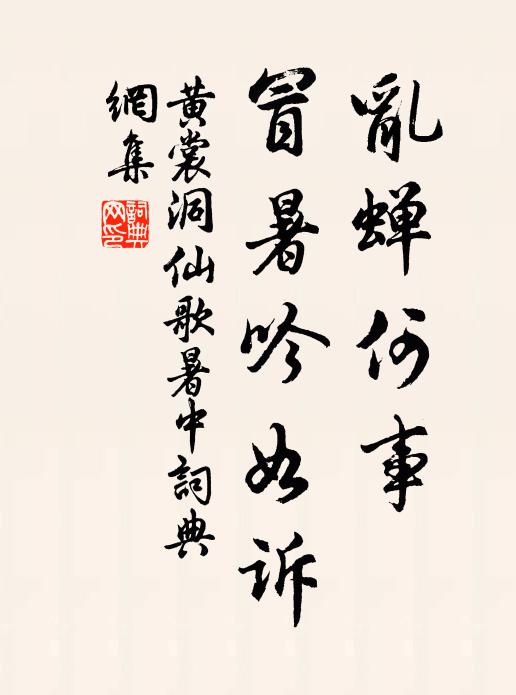 亂蝉何事
冒暑吟如訴
黃裳洞仙歌暑中詞典
網集
詞典網印